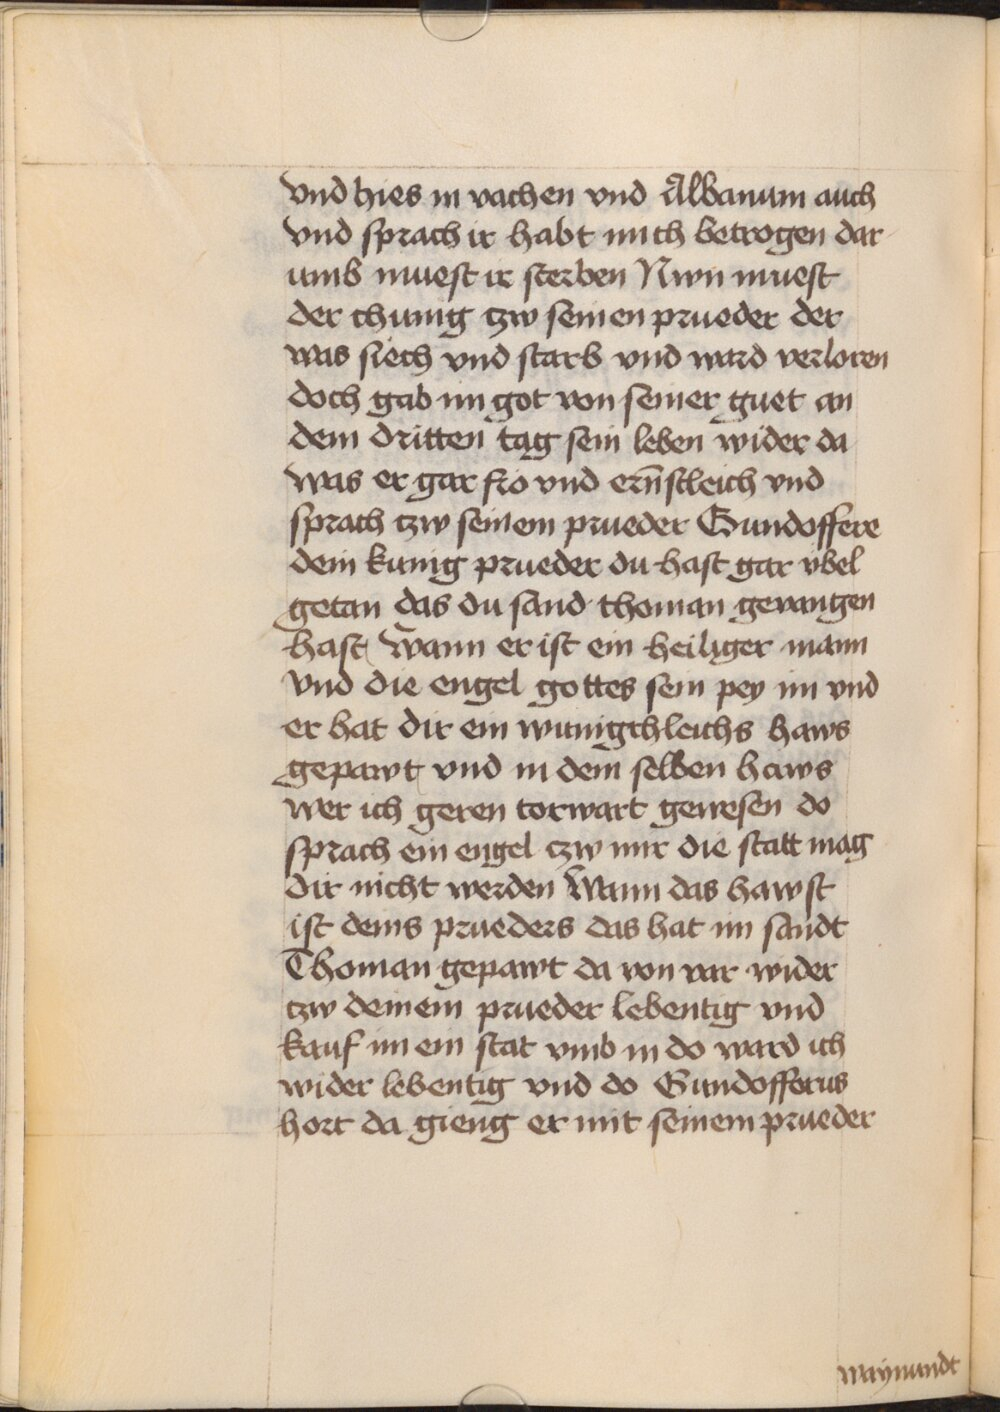 vnd hies in vachen vnd Albanum auch
vnd sprach ir habt mich betrogen dar
umb muest ir sterben Nwn muest
der chunig tzw seinen prueder der
was siech vnd starb vnd ward verloren
doch gab im got von seiner guet an
dem dritten tag sein leben wider da
was er gar fro vnd ernstleich vnd
sprach tzw seinem prueder Gundoffere
dem kunig prueder du hast gar vbel
getan das du sand thoman gevangen
hast wann er ist ein heiliger mann
vnd die engel gottes sein pey im vnd
er hat dir ein wunigchleichs haws
gepawt vnd in dem selben haws
wer ich geren torwart gewesen do
sprach ein engel tzw mir die statt mag
dir nicht werden Wann das haws st
ist deins prueders das hat im sandt
Thoman gepawt da von var wider
tzw deinem prueder lebentig vnd
kauf im ein stat vmb in do ward ich
wider lebentig vnd do Gundofferus
hort da gieng er mit seinem prueder
waynundt